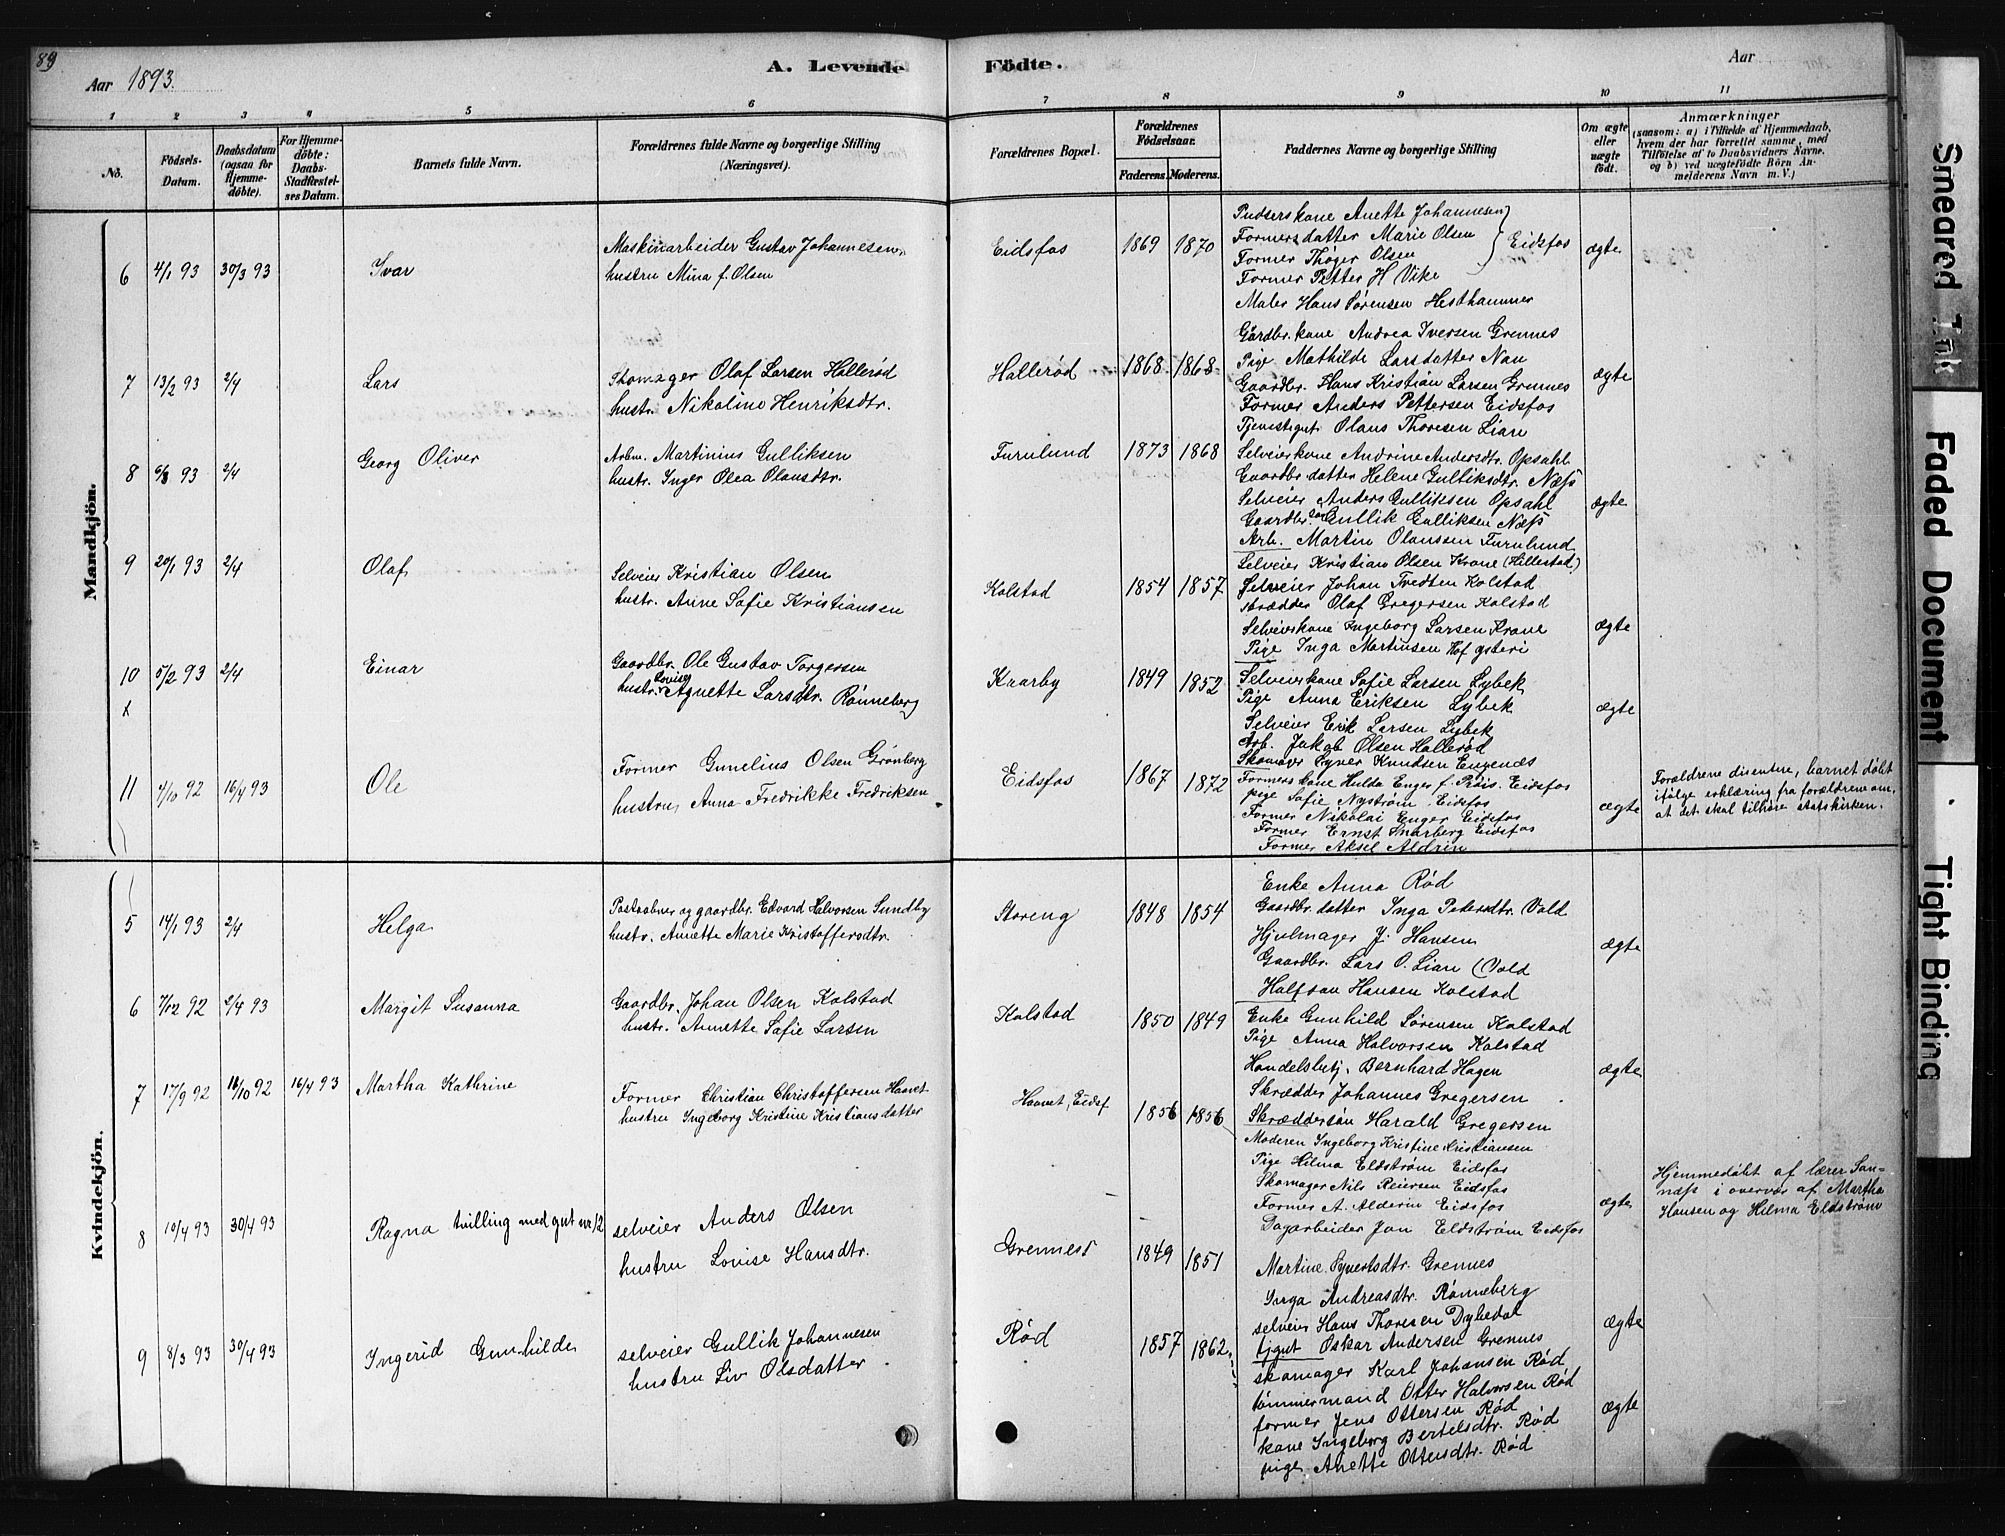 89
Aar 1893.
A. Levende Födte.
Aar
1 2 3 4 5 6 7 8 9 10 11
No.
Födsels-Datum.
Daabsdatum (ogsaa for Hjemme-döbte).
For Hjemme-döbte: Daabs-Stadfæstel-ses Datum.
Barnets fulde Navn.
Forældrenes fulde Navne og borgerlige Stilling (Næringsvei).
Forældrenes Bopæl.
Forældrenes Födselsaar.
Faderens. Moderens.
Faddernes Navne og borgerlige Stilling
Om ægte eller uægte födt.
Anmærkninger
(saasom: a) i Tilfælde af Hjemmedaab, hvem der har forrettet samme, med Tilföielse af to Daabsvidners Navne. og b) ved uægtefödte Börn Anmelderens Navn m. V.)
Mandkjön.
6 4/1 93 30/3 93 Ivar
Maskinarbeider Gustav Johannesen
hustru Mina f. Olsen
Eidsfos 1869 1870
Pudserskone Anette Johannesen
Formersdatter Marie Olsen
Former Thøger Olsen
Former Petter H Vike
Eidsfos
Maler Hans Sørensen Hesthammer
ægte
7 13/2 93 2/4 Lars
Skomager Olaf Larsen Hallerød
hustr. Nikoline Henriksdtr.
Hallerød 1868 1868
Gårdbr.kone Andrea Iversen Grennes
Pige Mathilde Larsdatter Nau
Gaardbr. Hans Kristian Larsen Grennes
Former Anders Pettersen Eidsfos
Tjenestegut Olaus Thoresen Lian
ægte
8 6/3 93 2/4 Georg Oliver
Arbm. Martinius Gulliksen
hustr. Inger Olea Olausdtr.
Furulund 1873 1868
Selveierkone Andrine Andersdtr. Opsahl
Gaardbr.datter Helene Gulliksdtr. Næss
Selveier Anders Gulliksen Opsahl
Gaardbr.søn Gullik Gulliksen Næss
Arb. Martin Olaussen Furulund
ægte
9 20/1 93 2/4 Olaf
Selveier Kristian Olsen
hustr. Anne Sofie Kristiansen
Kolstad 1854 1857
Selveier Kristian Olsen Krone (Hillestad)
Selveier Johan Tvedten Kolstad
skrædder Olaf Gregersen Kolstad
Selveierkone Ingeborg Larsen Krone
Pige Inga Martinsen Hof
ægte
10 5/2 93 2/4 Einar
x
Gaardbr. Ole Gustav Torgersen
hustr. Lovise Agnette Larsdtr. Rønneberg
Kaarby 1849 1852
Selveierkone Sofie Larsen Lybek
Pige Anna Eriksen Lybek
Selveier Erik Larsen Lybek
Arb. Jakob Olsen Hallerød
Skomager Syver Knudsen Engenæs
ægte
11 4/10 92 16/4 93 Ole
Former Gunelius Olsen Grønberg
hustru Anna Fredrikke Fredriksen
Eidsfos 1867 1872
Formerskone Hulda Enger f. Eidsfos
pige Sofie Nystrøm Eidsfos
Former Nikolai Enger Eidsfos
Former Ernst Snarberg Eidsfos
Former Aksel Aldrin
ægte
Forældrene dissentre, barnet døbt
ifølge erklæring fra forældrene om,
at det skal tilhøre statskirken.
Kvindekjön.
5 14/1 93 2/4 Helga
Postaabner og gaardbr. Edvard Halvorsen Sundby
hustr. Annette Marie Kristoffersdtr.
Storeng 1848 1854
Enke Anna Rød
Gaardbr.datter Inga Petersdtr. Vold
Hjulmager J. Hansen
Gaardbr. Lars O. Lian (Vold
Halfdan Hansen Kolstad
ægte
6 7/12 92 2/4 93 Margit Susanna
Gaardbr. Johan Olsen Kolstad
hustr. Annette Sofie Larsen
Kolstad 1850 1849
Enke Gunhild Sørensen Kolstad
Pige Anna Halvorsen Kolstad
Handelsbetj. Bernhard Hagen
Skrædder Johannes Gregersen
Skræddersøn Harald Gregersen
ægte
7 17/9 92 16/10 92 16/4 93 Martha Kathrine
Former Christian Christoffersen Haavet
hustru Ingeborg Kristine Kristiansdatter
Haavet, Eidsf 1856 1856
Moderen Ingeborg Kristine Kristiansen
Pige Hilma Eldstrøm Eidsfos
Skomager Nils Reiersen Eidsfos
Former A. Alderin Eidsfos
Dagarbeider Jan Eldstrøm Eidsfos
ægte
Hjemmedøbt af lærer San-
næss i overvær af Martha
Hansen og Hilma Eldstrøm
8 10/4 93 30/4 93 Ragna tvilling med gut nr 12
selveier Anders Olsen
hustru Lovise Hansdtr.
Grennes 1849 1851
Martine Syvertsdtr. Grennes
Inga Andreasdtr. Rønneberg
selveier Hans Thoresen Dybedal
tjgut Oskar Andersen Grennes
skomager Karl Johansen Rød
ægte
9 8/3 93 30/4 93 Ingerid Gunhilde
selveier Gullik Johannesen
hustru Liv Olsdatter
Rød 1857 1862
tømmermand Otter Halvorsen Rød
former Jens Ottersen Rød
kone Ingeborg Bertelsdtr. Rød
pige Anette Ottersdtr. Rød
ægte
Smeared Ink
Faded Document
Tight Binding